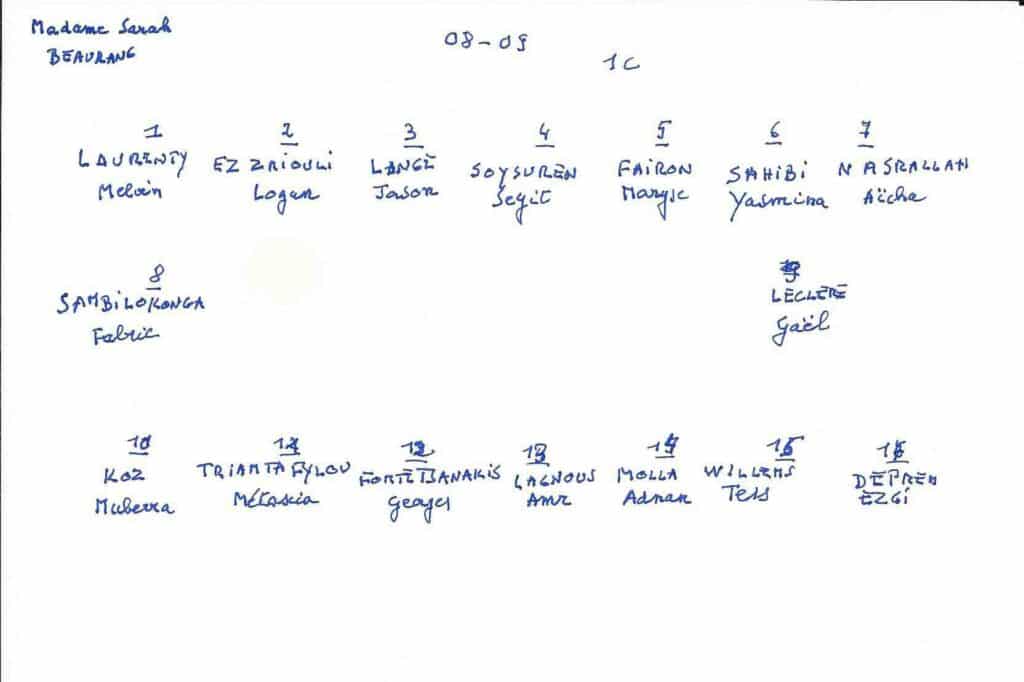 Madame Sarah
BEAURANG
08-09
1C
1 2 3 4 5 6 7
LAURENTY EZ ZRIOULI LANGE SOYSUREN FAIRON SAHIBI NASRALLAH
Melvin Logan Jason Segit Maryse Yasmina Aïcha
8 9
SAMBILOKONGA LECLERE
Fabric Gaël
10 11 12 13 14 15 16
KOZ TRIANTAFYLOU LAGNOUS MOLLA WILLEMS DEPREM
Muberra Georges Amr Adnan Tess EZGI